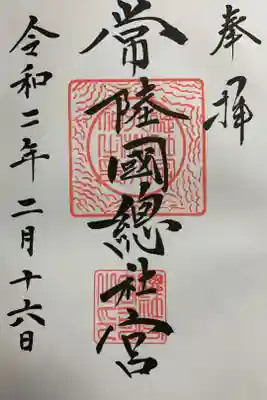 奉拝
常陸國總社宮
令和二年二月十六日